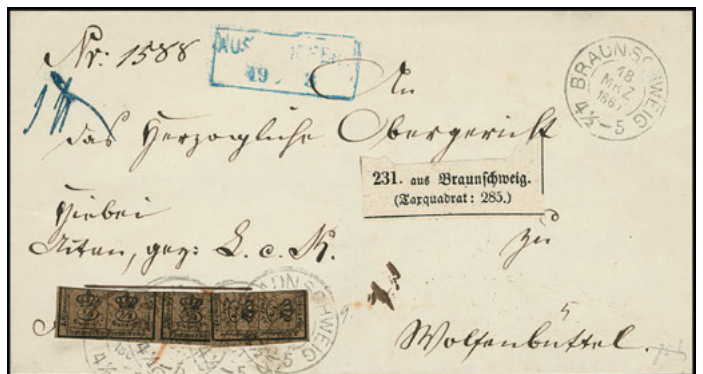 Nr: 1588
AUS
19
An
BRAUNSCHWEIG
18
MRZ
1867
4½-5
das Herzogliche Obergericht
231. aus Braunschweig.
(Taxquadrat: 285.)
Hiebei
Akten, gez: L. c. R.
zu
Wolfenbüttel.